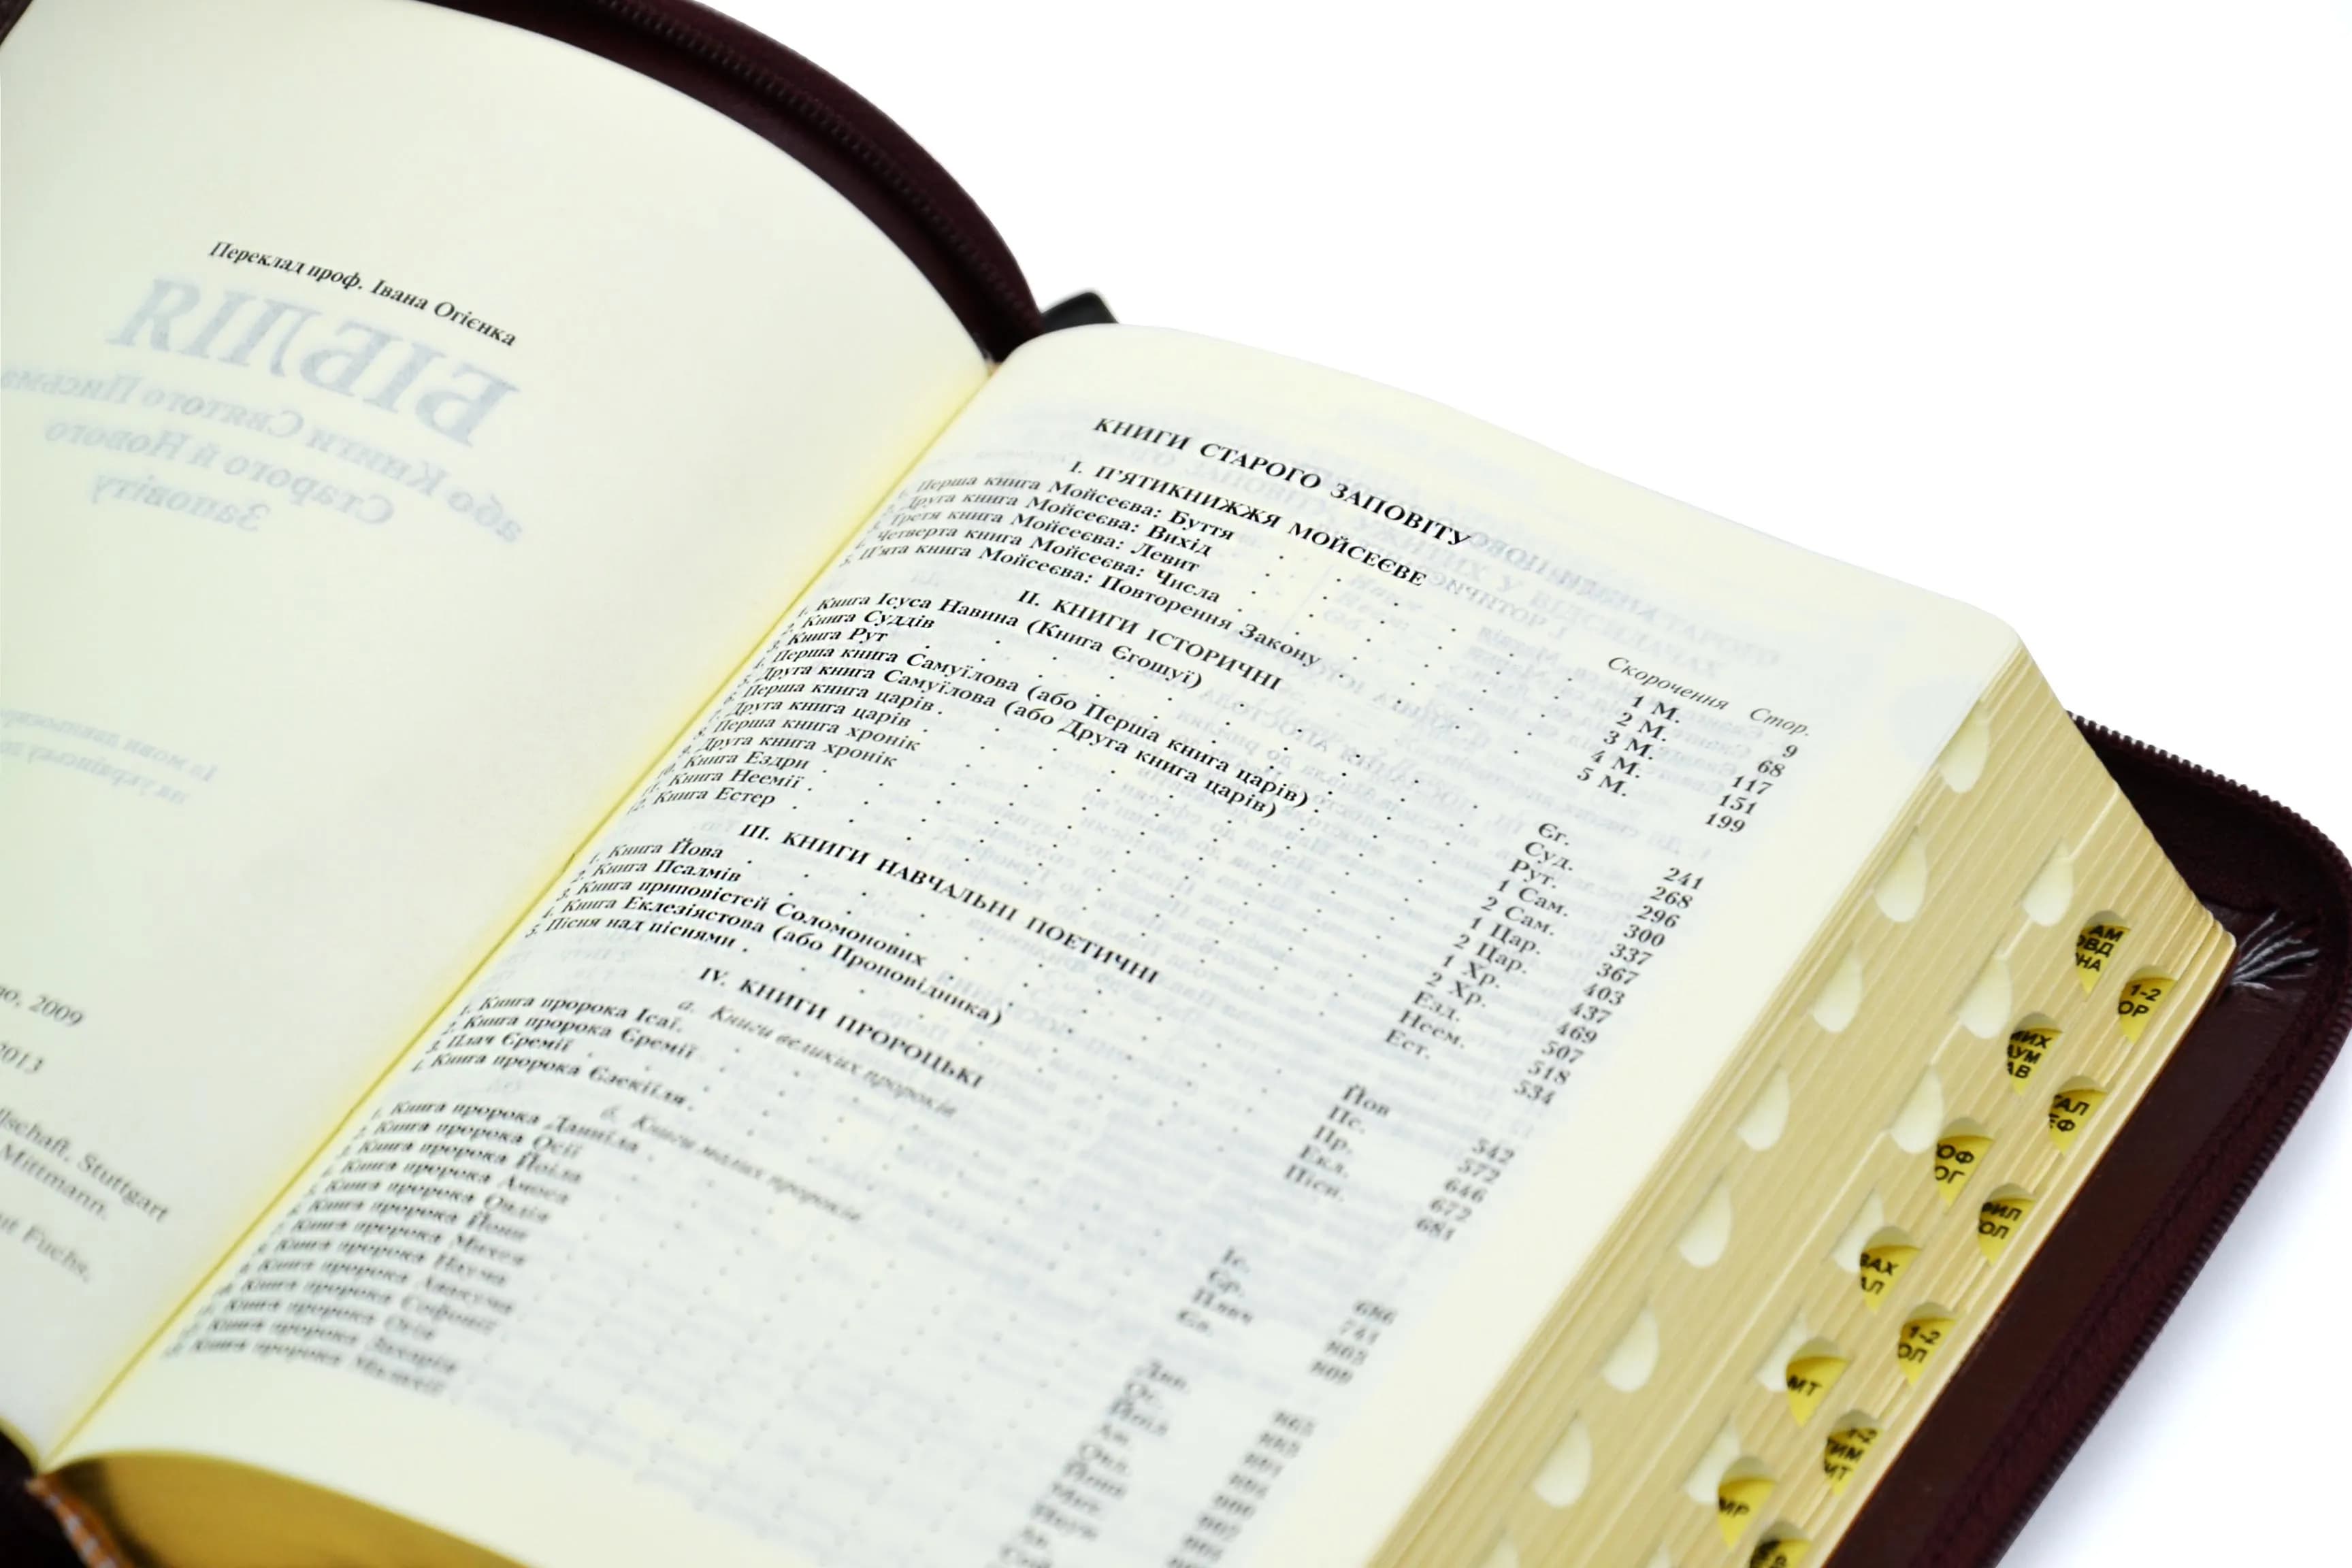 Переклад проф. Івана Огієнка
БІБЛІЯ
або Книги Святого Письма
Старого й Нового
Заповіту
2009
2013
Stuttgart
Mittmann.
Fuchs,
КНИГИ СТАРОГО ЗАПОВІТУ
Скорочення Стор.
І. П'ЯТИКНИЖЖЯ МОЙСЕЄВЕ
1. Перша книга Мойсеєва: Буття 1 М. 9
2. Друга книга Мойсеєва: Вихід 2 М. 68
3. Третя книга Мойсеєва: Левит 3 М. 117
4. Четверта книга Мойсеєва: Числа 4 М. 151
5. П'ята книга Мойсеєва: Повторення Закону 5 М. 199
ІІ. КНИГИ ІСТОРИЧНІ
1. Книга Ісуса Навина (Книга Єгошуї) Єг. 241
2. Книга Суддів Суд. 268
3. Книга Рут Рут. 296
4. Перша книга Самуїлова (або Перша книга царів) 1 Сам. 300
5. Друга книга Самуїлова (або Друга книга царів) 2 Сам. 337
6. Перша книга царів 1 Цар. 367
7. Друга книга царів 2 Цар. 403
8. Перша книга хронік 1 Хр. 437
9. Друга книга хронік 2 Хр. 469
10. Книга Ездри Езд. 507
11. Книга Неемії Неем. 518
12. Книга Естер Ест. 534
ІІІ. КНИГИ НАВЧАЛЬНІ ПОЕТИЧНІ
1. Книга Йова Йов 542
2. Книга Псалмів Пс. 572
3. Книга приповістей Соломонових Пр. 646
4. Книга Еклезіястова (або Проповідника) Екл. 672
5. Пісня над піснями Пісн. 681
IV. КНИГИ ПРОРОЦЬКІ
а. Книги великих пророків
1. Книга пророка Ісаї Іс. 686
2. Книга пророка Єремії Єр. 741
3. Плач Єремії Плач 803
4. Книга пророка Єзекіїля Єз. 809
б. Книги малих пророків
1. Книга пророка Даниїла Дан.
2. Книга пророка Осії Ос.
3. Книга пророка Йоіла Йоіл
4. Книга пророка Амоса Ам.
5. Книга пророка Овдія Овд.
6. Книга пророка Йони Йона
7. Книга пророка Михея Мих.
8. Книга пророка Наума Наум
9. Книга пророка Авакума Ав.
10. Книга пророка Софонії
11. Книга пророка Огія
12. Книга пророка Захарія
13. Книга пророка Малахії
АМ
ОВД
1-2
МИХ
МТ
1-2
1-2
МР